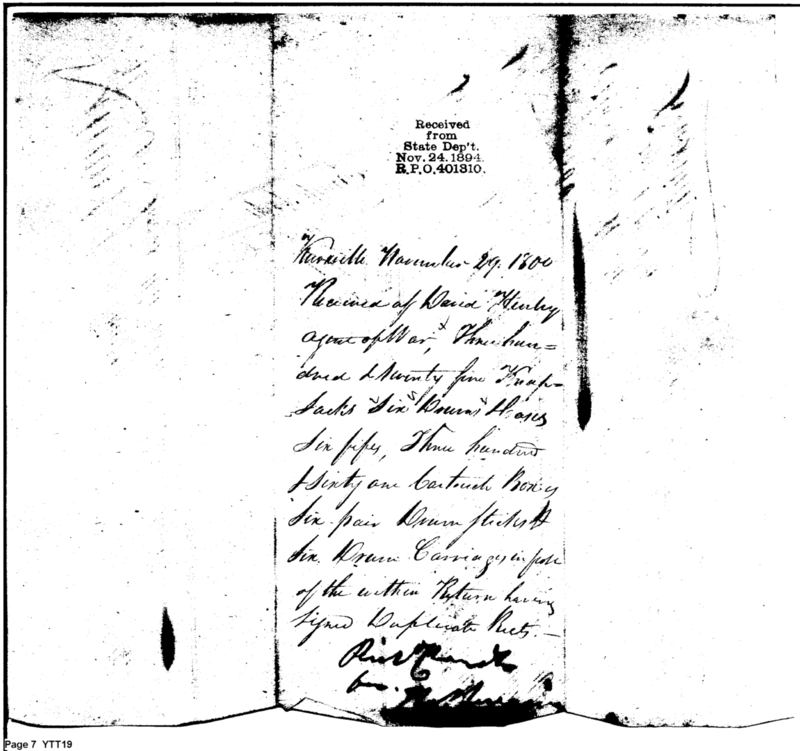 Received
from
State Dep't.
Nov. 24. 1894.
R.P.O. 401310.
Knoxville November 29. 1800
Received of David Henley
agent of War, Three hun=
dred & twenty five Knap=
sacks Six Drums &
Six fifes, Three hundred
& Sixty one Cartouch Boxes
Six pair Drum sticks &
Six Drum Carriages in part
of the within Return having
signed Duplicate Rects.—
Page 7 YTT19